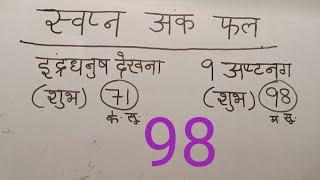 स्वप्न अंक फल
इंद्रधनुष देखना
(शुभ) 71
के. सू.
१ अप्टनग
(शुभ) 98
म सू.
98